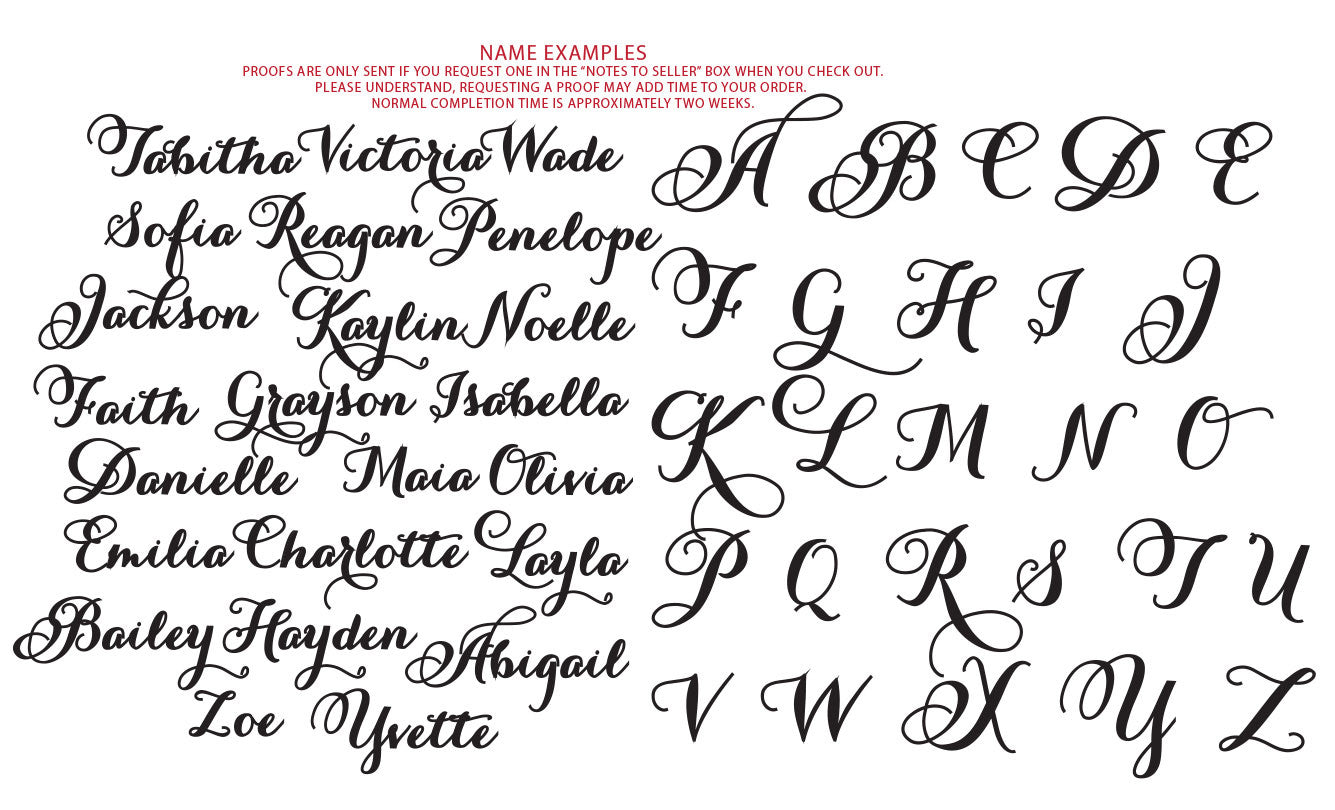 NAME EXAMPLES
PROOFS ARE ONLY SENT IF YOU REQUEST ONE IN THE “NOTES TO SELLER” BOX WHEN YOU CHECK OUT.
PLEASE UNDERSTAND, REQUESTING A PROOF MAY ADD TIME TO YOUR ORDER.
NORMAL COMPLETION TIME IS APPROXIMATELY TWO WEEKS.
Tabitha Victoria Wade
Sofia Reagan Penelope
Jackson Kaylin Noelle
Faith Grayson Isabella
Danielle Maia Olivia
Emilia Charlotte Layla
Bailey Hayden Abigail
Zoe Yvette
A B C D E
F G H I J
K L M N O
P Q R S T U
V W X Y Z